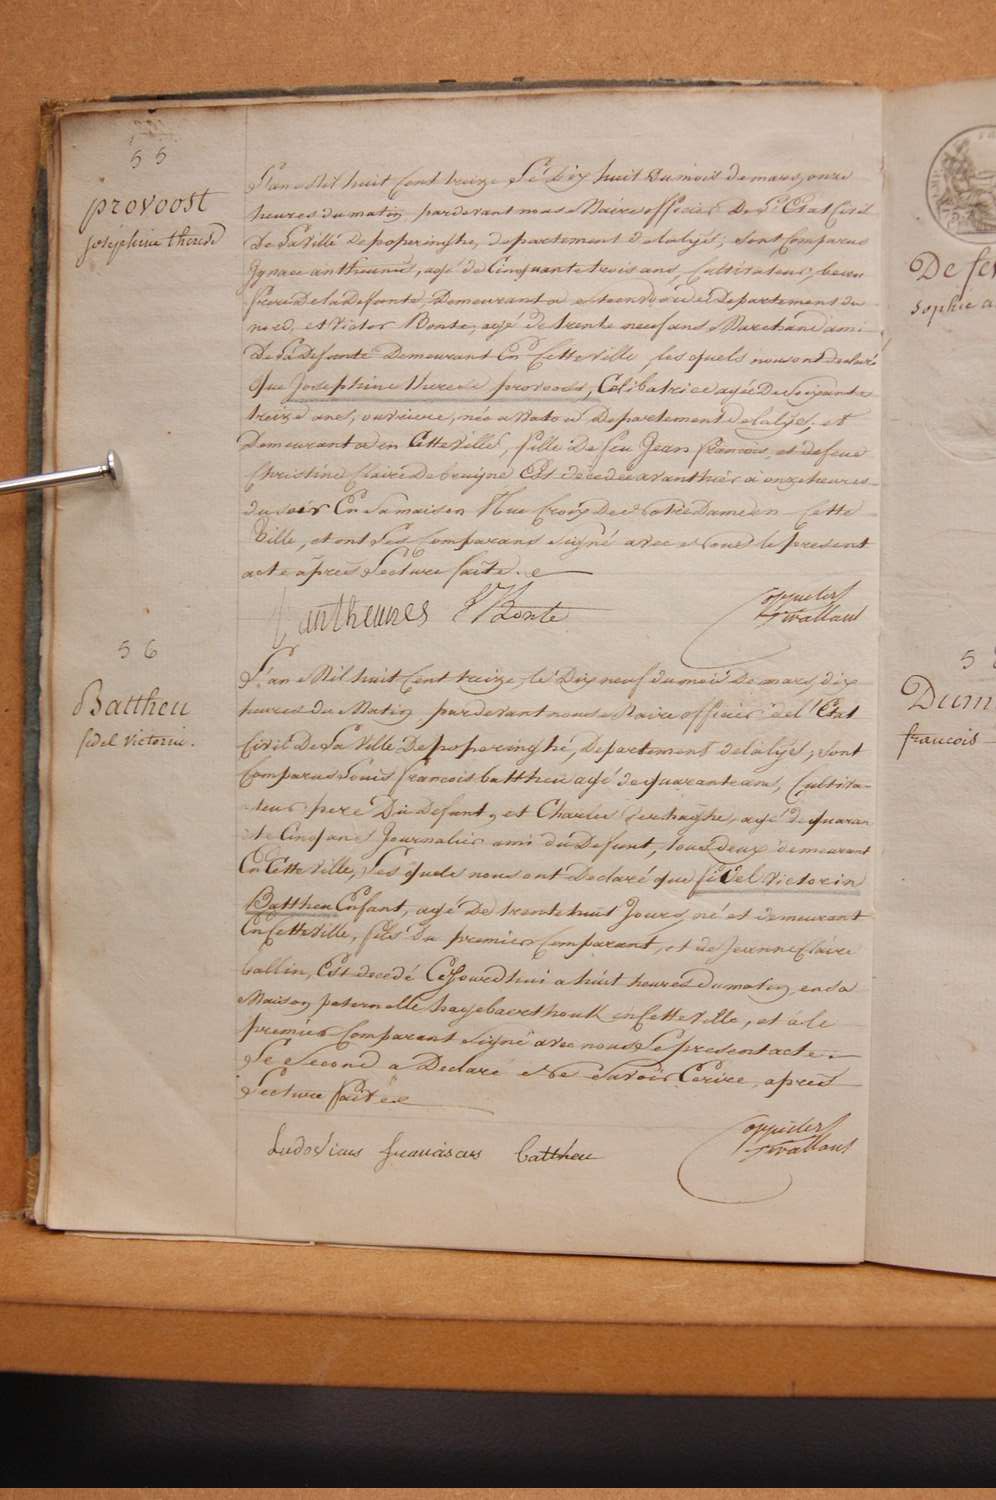 55
provoost
joséphine therese
L'an Mil huit Cent treize Le Dix huit du mois de mars, onze
heures du matin par devant nous Maire officier De L'Etat Civil
De La Ville De poperinghe, departement de la lys; sont Comparus
Ignace antheunis, agé de Cinquante trois ans, Cultivateur, beau
frere De la Defunte, Demeurant a Departement du
nord, et Victor Bonte, agé de trente neuf ans Marchand ami
De La Defunte Demeurant En Cette Ville, les quels nous ont declaré
que Josephine therese provoost, Celibatrice agée De soixante
treize ans, ouvriere, née a Watou Departement de la lys, et
Demeurant en Cette Ville, fille De feu Jean francois, et de feue
Christine Claire De bruyne Est decedée avant hier à onze heures
du soir En sa maison Rue Croix De Notre Dame en Cette
Ville, et ont Les Comparans signé avec Nous le present
acte après Lecture faite.
antheunes V Bonte
56
Battheu
fidel victorin.
L'an Mil huit Cent treize, le Dix neuf du mois De mars, dix
heures du Matin par devant nous Maire officier de l'Etat
Civil De La Ville De poperinghe, Departement de la lys; sont
Comparus Louis francois battheu agé de quarante ans, Cultiva-
teur pere Du Defunt, et Charles verhaeghe, agé de quaran
te Cinq ans Journalier ami du Defunt, tous deux demeurant
En Cette Ville, Les quels nous ont Declaré que fidel victorin
Battheu Enfant, agé De trente huit Jours, né et demeurant
En Cette Ville, fils du premier Comparant, et de Jeanne Claire
ballin, Est decedé Cejourd'hui a huit heures du matin en sa
Maison paternelle en Cette Ville, et à le
premier Comparant signé avec nous Le present acte.
Le Second a Declaré Ne Savoir Ecrire, après
Lecture faite
Ludovicus franciscus battheu
De
sophie
Dum
francois